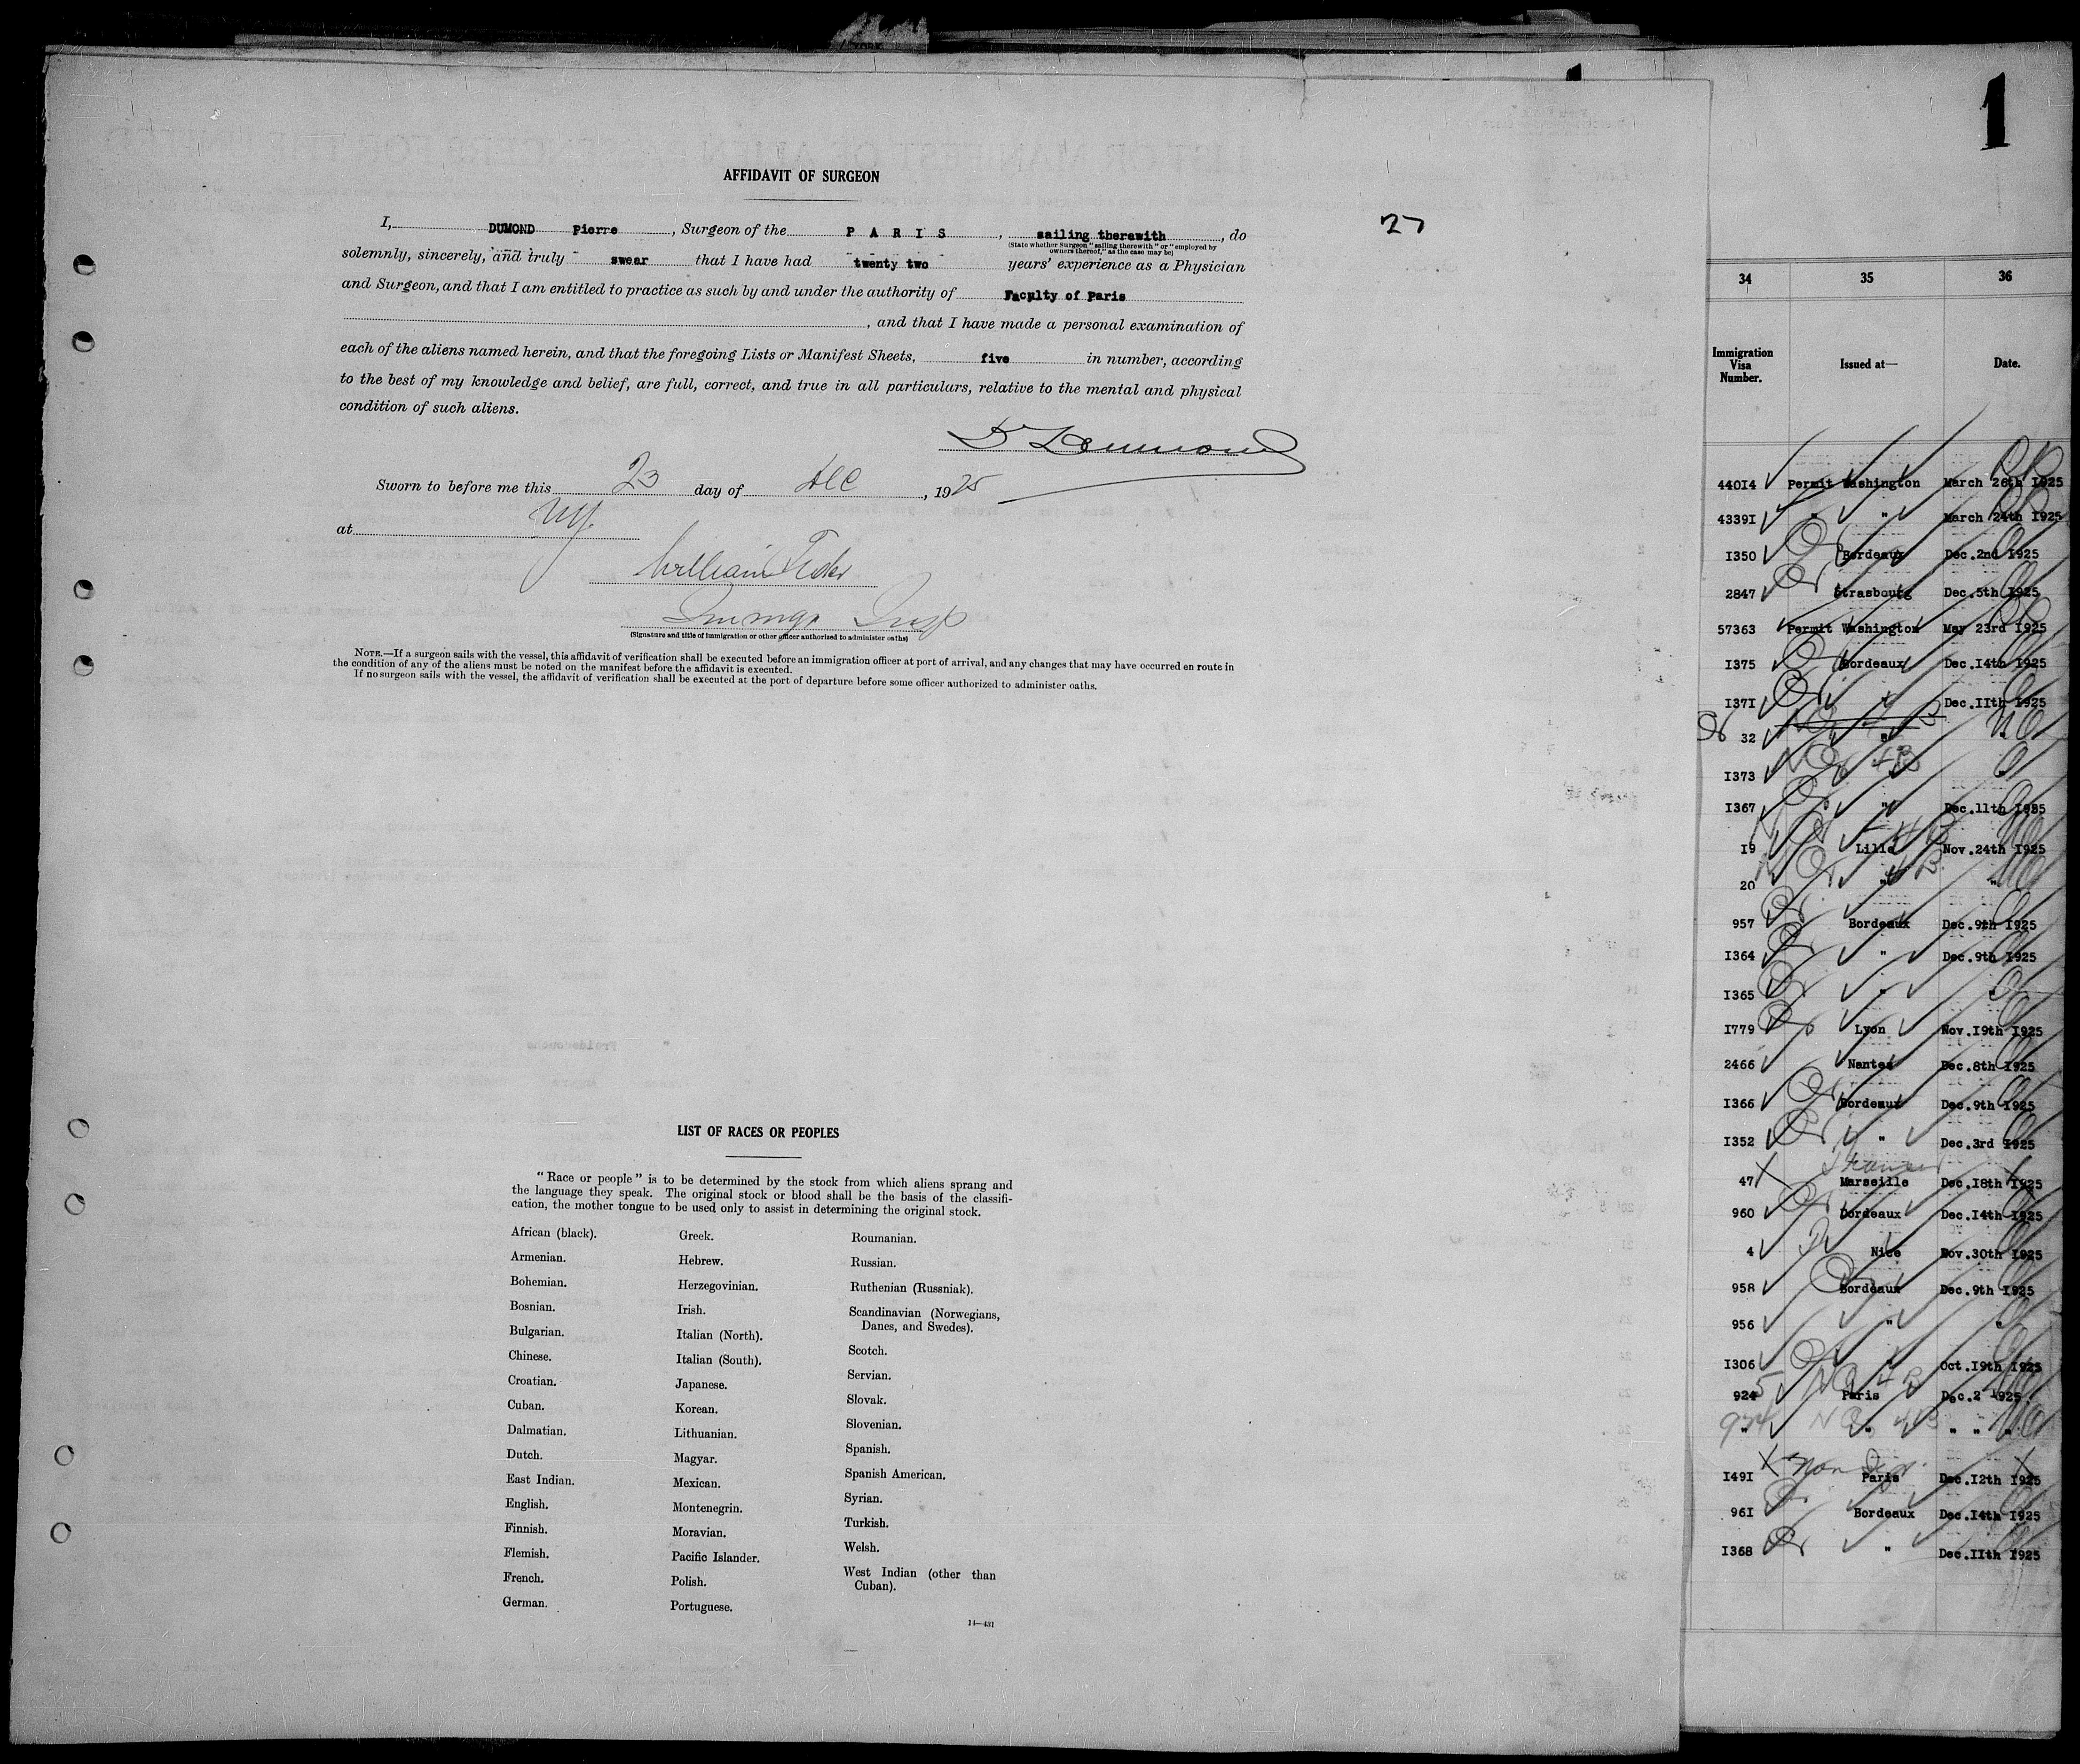 1
AFFIDAVIT OF SURGEON
27
I, DUMOND Pierre , Surgeon of the P A R I S , sailing therewith , do
(State whether Surgeon "sailing therewith" or "employed by
owners thereof," as the case may be)
solemnly, sincerely, and truly swear that I have had twenty two years' experience as a Physician
and Surgeon, and that I am entitled to practice as such by and under the authority of Faculty of Paris
, and that I have made a personal examination of
each of the aliens named herein, and that the foregoing Lists or Manifest Sheets, five in number, according
to the best of my knowledge and belief, are full, correct, and true in all particulars, relative to the mental and physical
condition of such aliens.
Sworn to before me this 23 day of Dec , 1925
at NY.
William
(Signature and title of immigration or other officer authorized to administer oaths)
NOTE.—If a surgeon sails with the vessel, this affidavit of verification shall be executed before an immigration officer at port of arrival, and any changes that may have occurred en route in
the condition of any of the aliens must be noted on the manifest before the affidavit is executed.
If no surgeon sails with the vessel, the affidavit of verification shall be executed at the port of departure before some officer authorized to administer oaths.
LIST OF RACES OR PEOPLES
"Race or people" is to be determined by the stock from which aliens sprang and
the language they speak. The original stock or blood shall be the basis of the classifi-
cation, the mother tongue to be used only to assist in determining the original stock.
African (black).
Armenian.
Bohemian.
Bosnian.
Bulgarian.
Chinese.
Croatian.
Cuban.
Dalmatian.
Dutch.
East Indian.
English.
Finnish.
Flemish.
French.
German.
Greek.
Hebrew.
Herzegovinian.
Irish.
Italian (North).
Italian (South).
Japanese.
Korean.
Lithuanian.
Magyar.
Mexican.
Montenegrin.
Moravian.
Pacific Islander.
Polish.
Portuguese.
Roumanian.
Russian.
Ruthenian (Russniak).
Scandinavian (Norwegians,
Danes, and Swedes).
Scotch.
Servian.
Slovak.
Slovenian.
Spanish.
Spanish American.
Syrian.
Turkish.
Welsh.
West Indian (other than
Cuban).
14—431
34 35 36
Immigration
Visa
Number.
Issued at—
Date.
44014 Permit Washington March 26th 1925
43391 " " March 24th 1925
1350 Bordeaux Dec.2nd 1925
2847 Strasbourg Dec.5th 1925
57363 Permit Washington May 23rd 1925
1375 Bordeaux Dec.14th 1925
1371 " Dec.11th 1925
32 "
1373 "
1367 " Dec.11th 1925
19 Lille Nov.24th 1925
20 " "
957 Bordeaux Dec.9th 1925
1364 " Dec.9th 1925
1365 " "
1779 Lyon Nov.19th 1925
2466 Nantes Dec.8th 1925
1366 Bordeaux Dec.9th 1925
1352 " Dec.3rd 1925
47 Marseille Dec.18th 1925
960 Bordeaux Dec.14th 1925
4 Nice Nov.30th 1925
958 Bordeaux Dec.9th 1925
956 " "
1306 " Oct.19th 1925
924 Paris Dec.2 1925
" " " " "
1491 Paris Dec.12th 1925
961 Bordeaux Dec.14th 1925
1368 " Dec.11th 1925